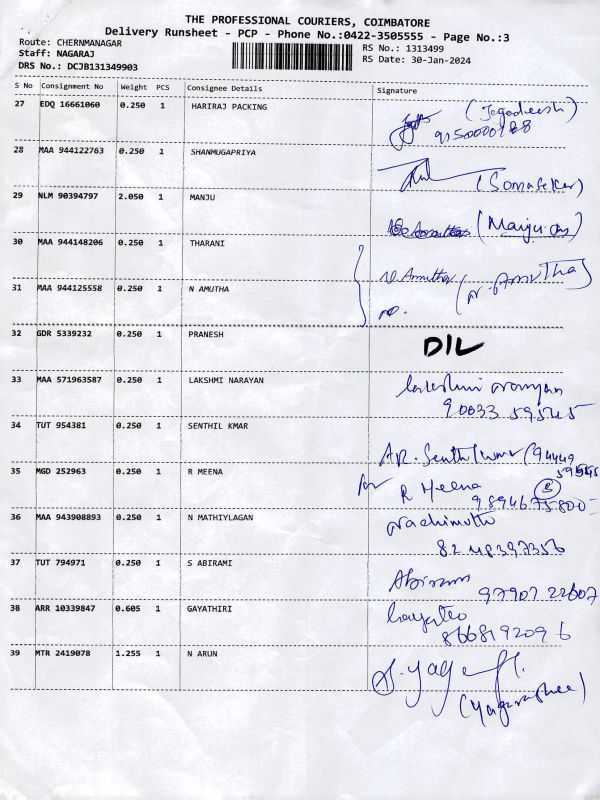 THE PROFESSIONAL COURIERS, COIMBATORE
Delivery Runsheet - PCP - Phone No.:0422-3505555 - Page No.:3
Route: CHERNMANAGAR
Staff: NAGARAJ
DRS No.: DCJB131349903
RS No.: 1313499
RS Date: 30-Jan-2024
S No Consignment No Weight PCS Consignee Details Signature
27 EDQ 16661060 0.250 1 HARIRAJ PACKING
(Jegadeesh)
28 MAA 944122763 0.250 1 SHANMUGAPRIYA
(Somasekar)
29 NLM 90394797 2.050 1 MANJU
30 MAA 944148206 0.250 1 THARANI
31 MAA 944125558 0.250 1 N AMUTHA
(N. Amutha)
32 GDR 5339232 0.250 1 PRANESH
D/L
33 MAA 571963587 0.250 1 LAKSHMI NARAYAN
90033 59545
34 TUT 954381 0.250 1 SENTHIL KMAR
35 MGD 252963 0.250 1 R MEENA
for R Meena
9894675800
36 MAA 943908893 0.250 1 N MATHIYLAGAN
8248397356
37 TUT 794971 0.250 1 S ABIRAMI
Abirami 97907 22607
38 ARR 10339847 0.605 1 GAYATHIRI
8668192096
39 MTR 2419078 1.255 1 N ARUN